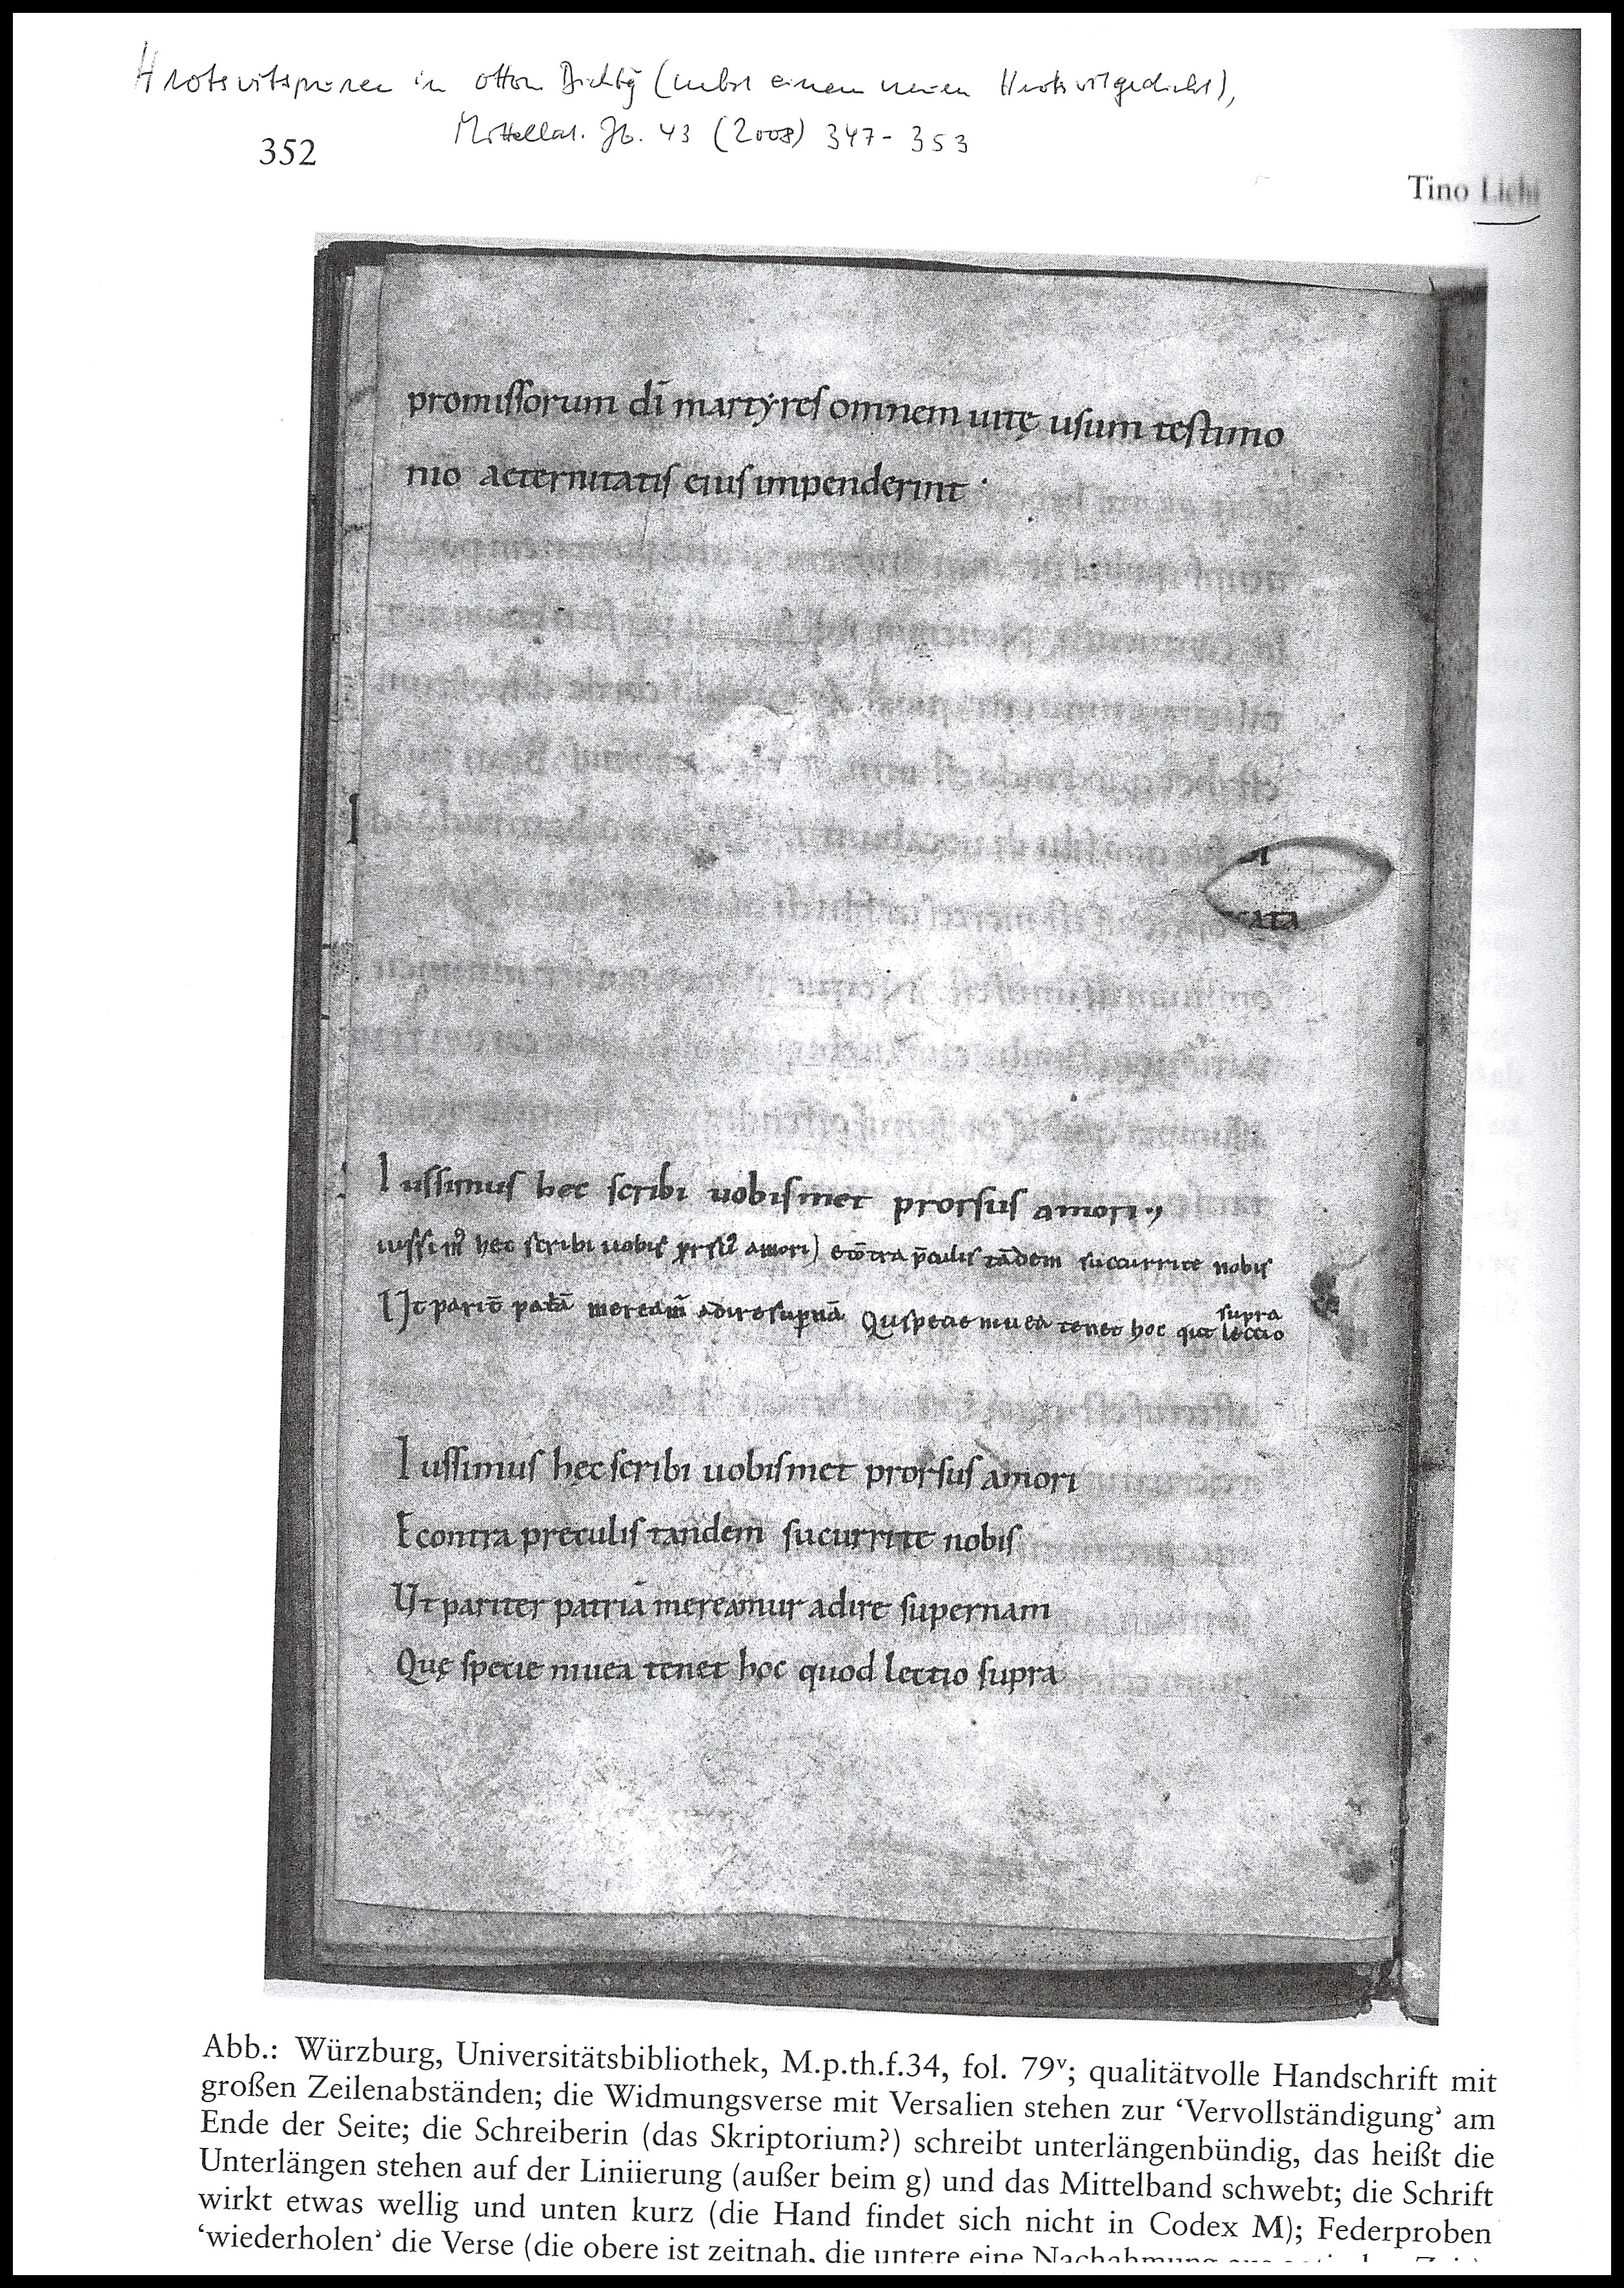 Hrotsvitspuren in otton. Dichtg (nebst einem neuen Hrotsvitgedicht),
Mittellat. Jb. 43 (2008) 347-353
352
Tino Licht
promissorum dī martyres omnem uitę usum testimo
nio aeternitatis eius impenderint ·
Iussimus hec scribi uobismet prorsus amori
iussim᷒ hec scribi uobis prorsus amori) ecōtra p̄culis tādem succurrite nobis
Ut parit̄ patā meream̄ adire supnā Qu specie niuea tenet hoc qđ lectio
supra
Iussimus hęc scribi uobismet prorsus amori
Econtra preculis tandem sucurrite nobis
Ut pariter patriā mereamur adire supernam
Quę specie niuea tenet hoc quod lectio supra
Abb.: Würzburg, Universitätsbibliothek, M.p.th.f.34, fol. 79ᵛ; qualitätvolle Handschrift mit
großen Zeilenabständen; die Widmungsverse mit Versalien stehen zur ‘Vervollständigung’ am
Ende der Seite; die Schreiberin (das Skriptorium?) schreibt unterlängenbündig, das heißt die
Unterlängen stehen auf der Liniierung (außer beim g) und das Mittelband schwebt; die Schrift
wirkt etwas wellig und unten kurz (die Hand findet sich nicht in Codex M); Federproben
‘wiederholen’ die Verse (die obere ist zeitnah, die untere eine Nachahmung